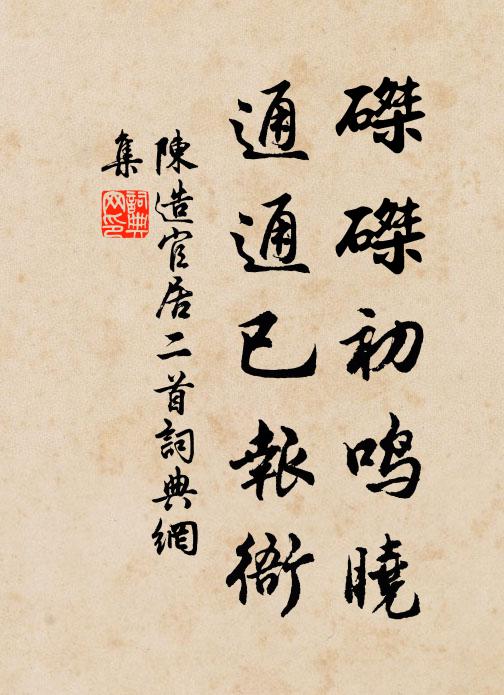 磔磔初鸣曉
通通已報衙
陳造官居二首詞典網
集
詞典网印